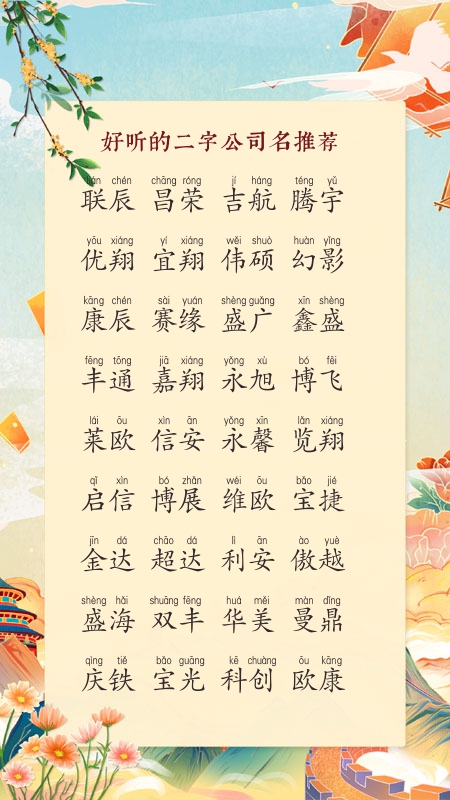 好听的二字公司名推荐
lián chén chāng róng jí háng téng yǔ
联辰 昌荣 吉航 腾宇
yōu xiáng yí xiáng wěi shuò huàn yǐng
优翔 宜翔 伟硕 幻影
kāng chén sài yuán shèng guǎng xīn shèng
康辰 赛缘 盛广 鑫盛
fēng tōng jiā xiáng yǒng xù bó fēi
丰通 嘉翔 永旭 博飞
lái ōu xìn ān yǒng xīn lǎn xiáng
莱欧 信安 永馨 览翔
qǐ xìn bó zhǎn wéi ōu bǎo jié
启信 博展 维欧 宝捷
jīn dá chāo dá lì ān ào yuè
金达 超达 利安 傲越
shèng hǎi shuāng fēng huá měi màn dǐng
盛海 双丰 华美 曼鼎
qìng tiě bǎo guāng kē chuàng ōu kāng
庆铁 宝光 科创 欧康